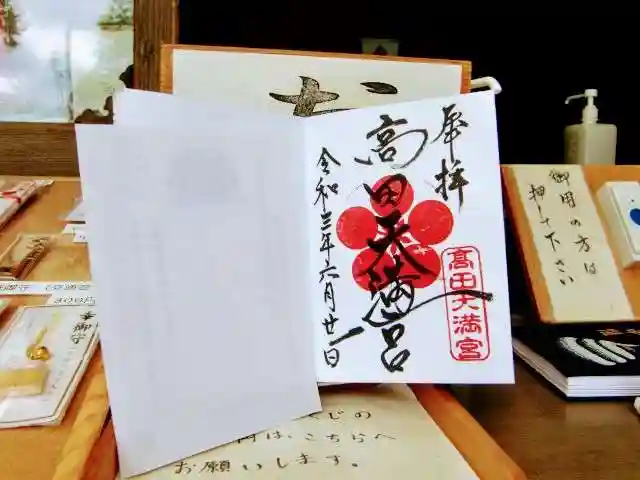 奉拝
高田天満宮
令和三年六月廿一日
高田天満宮
御用の方は
押して下さい
幸御守
じの
はこちらへ
お願いします。